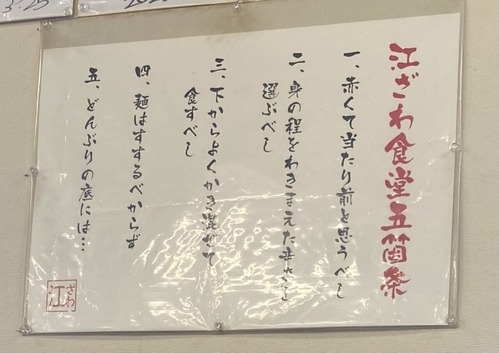 3.25
江ざわ食堂五箇条
一、赤くて当たり前と思うべし
二、身の程をわきまえた辛さを
選ぶべし
三、下からよくかき混ぜて
食すべし
四、麺はすするべからず
五、どんぶりの底には…
江ざわ